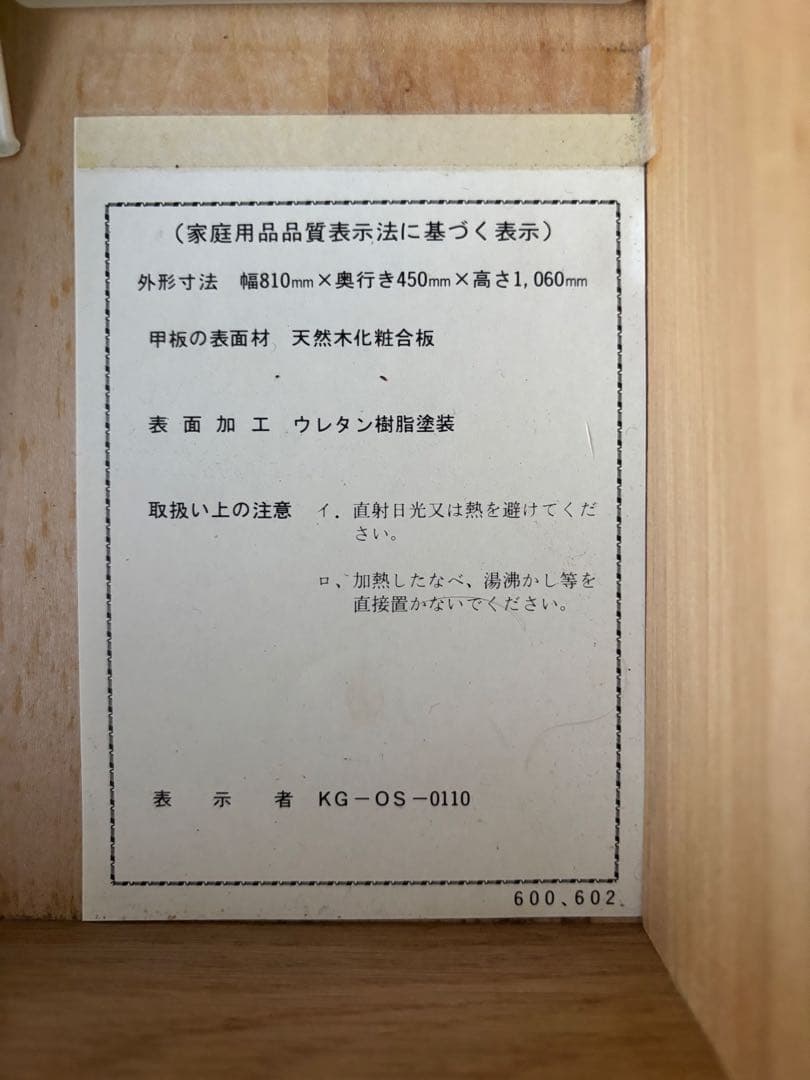 (家庭用品品質表示法に基づく表示)
外形寸法 幅810mm×奥行き450mm×高さ1,060mm
甲板の表面材 天然木化粧合板
表面加工 ウレタン樹脂塗装
取扱い上の注意 イ. 直射日光又は熱を避けてくだ
さい。
ロ、加熱したなべ、湯沸かし等を
直接置かないでください。
表示者 KG-OS-0110
600、602